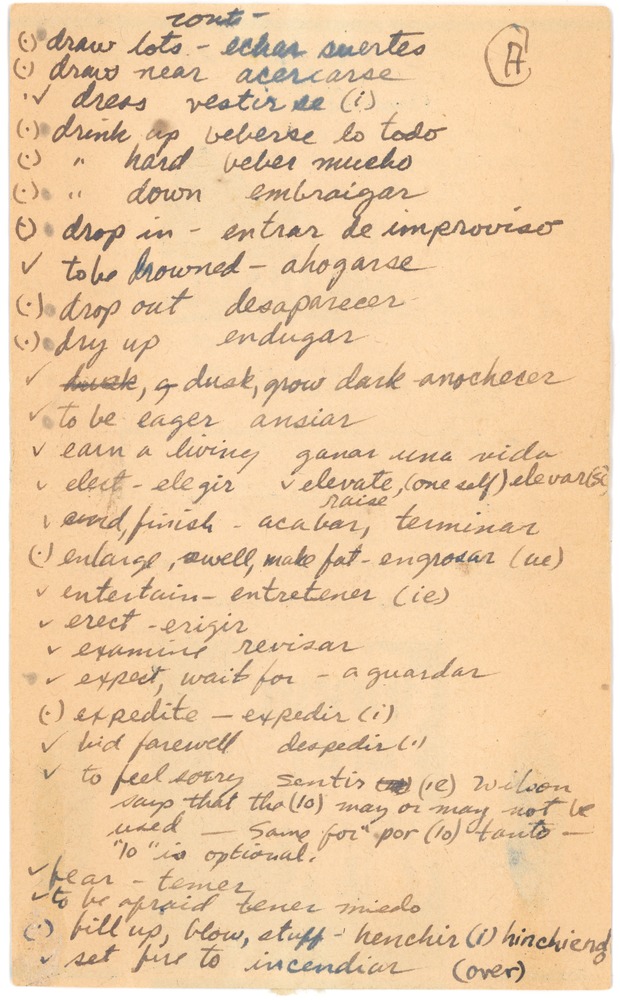 cont-
A
(·) draw lots - echar suertes
(·) draw near acercarse
✓ dress vestirse (i)
(·) drink up beberse lo todo
(·) " hard beber mucho
(·) " down embraigar
(·) drop in - entrar de improviso
✓ to be drowned - ahogarse
(·) drop out desaparecer
(·) dry up endugar
✓ husk, g dusk, grow dark anochecer
✓ to be eager ansiar
✓ earn a living ganar una vida
✓ elect - elegir ✓ elevate, (one self) elevar(se)
raise
✓ end, finish - acabar, terminar
(·) enlarge, swell, make fat - engrosar (ue)
✓ entertain - entretener (ie)
✓ erect - erigir
✓ examine revisar
✓ expect, wait for - aguardar
(·) expedite - expedir (i)
✓ bid farewell despedir (i)
✓ to feel sorry sentir (ie) Wilson
says that the (lo) may or may not be
used - Same for "por (lo) tanto -
"lo" is optional.
✓ fear - temer
✓ to be afraid tener miedo
(·) fill up, blow, stuff - henchir (i) hinchiend
✓ set fire to incendiar (over)